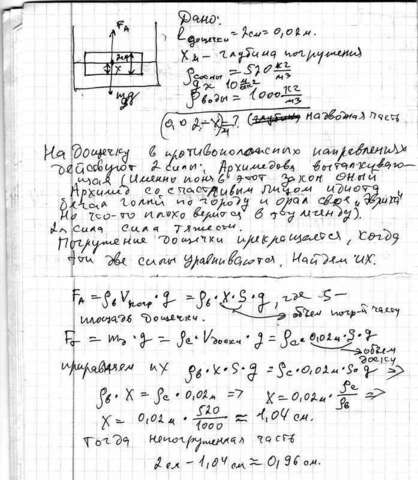 Дано:
F_A
l дощечки = 2см = 0,02м.
X м - глубина погружения
ρ сосны = 520 кг/м3
g ≈ 10 м/с²
ρ воды = 1000 кг/м3
0,02 - X = ? надводная часть
2см
X
mg
На дощечку в противоположных направлениях
действуют 2 силы: Архимедова выталкиваю-
щая (Именно поняв этот закон оный
Архимед со счастливым лицом идиота
бегал голый по городу и орал свое „Эврика"
Но что-то плохо верится в эту легенду).
2я сила сила тяжести.
Погружение дощечки прекращается, когда
эти две силы уравниваются. Найдем их.
F_A = ρв V погр · g = ρв · X · S · g, где S -
площадь дощечки. объем погр-й части
F_T = mд · g = ρс · V доски · g = ρс · 0,02м · S · g
объем доски
приравняем их ρв · X · S · g = ρс · 0,02м · S · g =>
ρв · X = ρс · 0,02м => X = 0,02м · ρс/ρв =>
X = 0,02м · 520/1000 ≈ 1,04 см.
Тогда непогруженная часть
2см - 1,04 см ≈ 0,96 см.